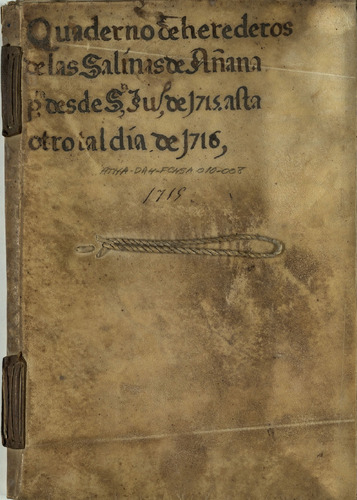 Quaderno de herederos
de las Salinas de Añana
pa. desde Sn. Jun. de 1715. asta
otro tal dia de 1716,
ATHA-DAH-FCHSA 010-008
1715.